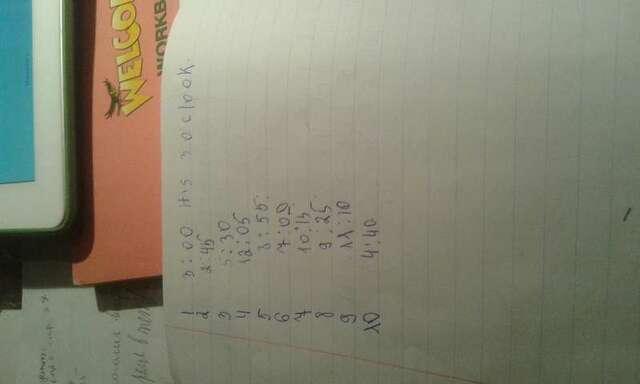 WELCO
WORKB
1 3:00 It is 3 o'clook.
2 2:45
3 5:30
4 12:05
5 3:55.
6 7:00
7 10:15
8 9:25
9 11:10
10 4:40